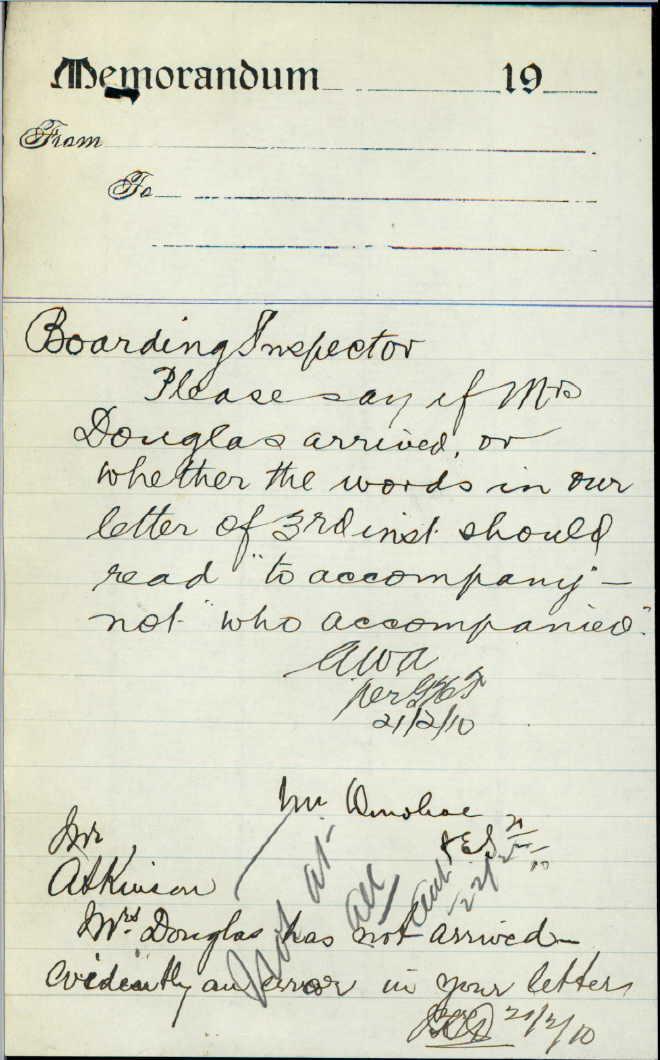 Memorandum 19
From
To
Boarding Inspector
Please say if Mrs
Douglas arrived, or
whether the words in our
letter of 3rd inst should
read "to accompany" –
not "who accompanied."
AWA
per
21/2/10
Mr Donohoe
Mr
Atkinson
Not at
all
22/2
Mrs. Douglas has not arrived –
evidently an error in your letters
21/2/10